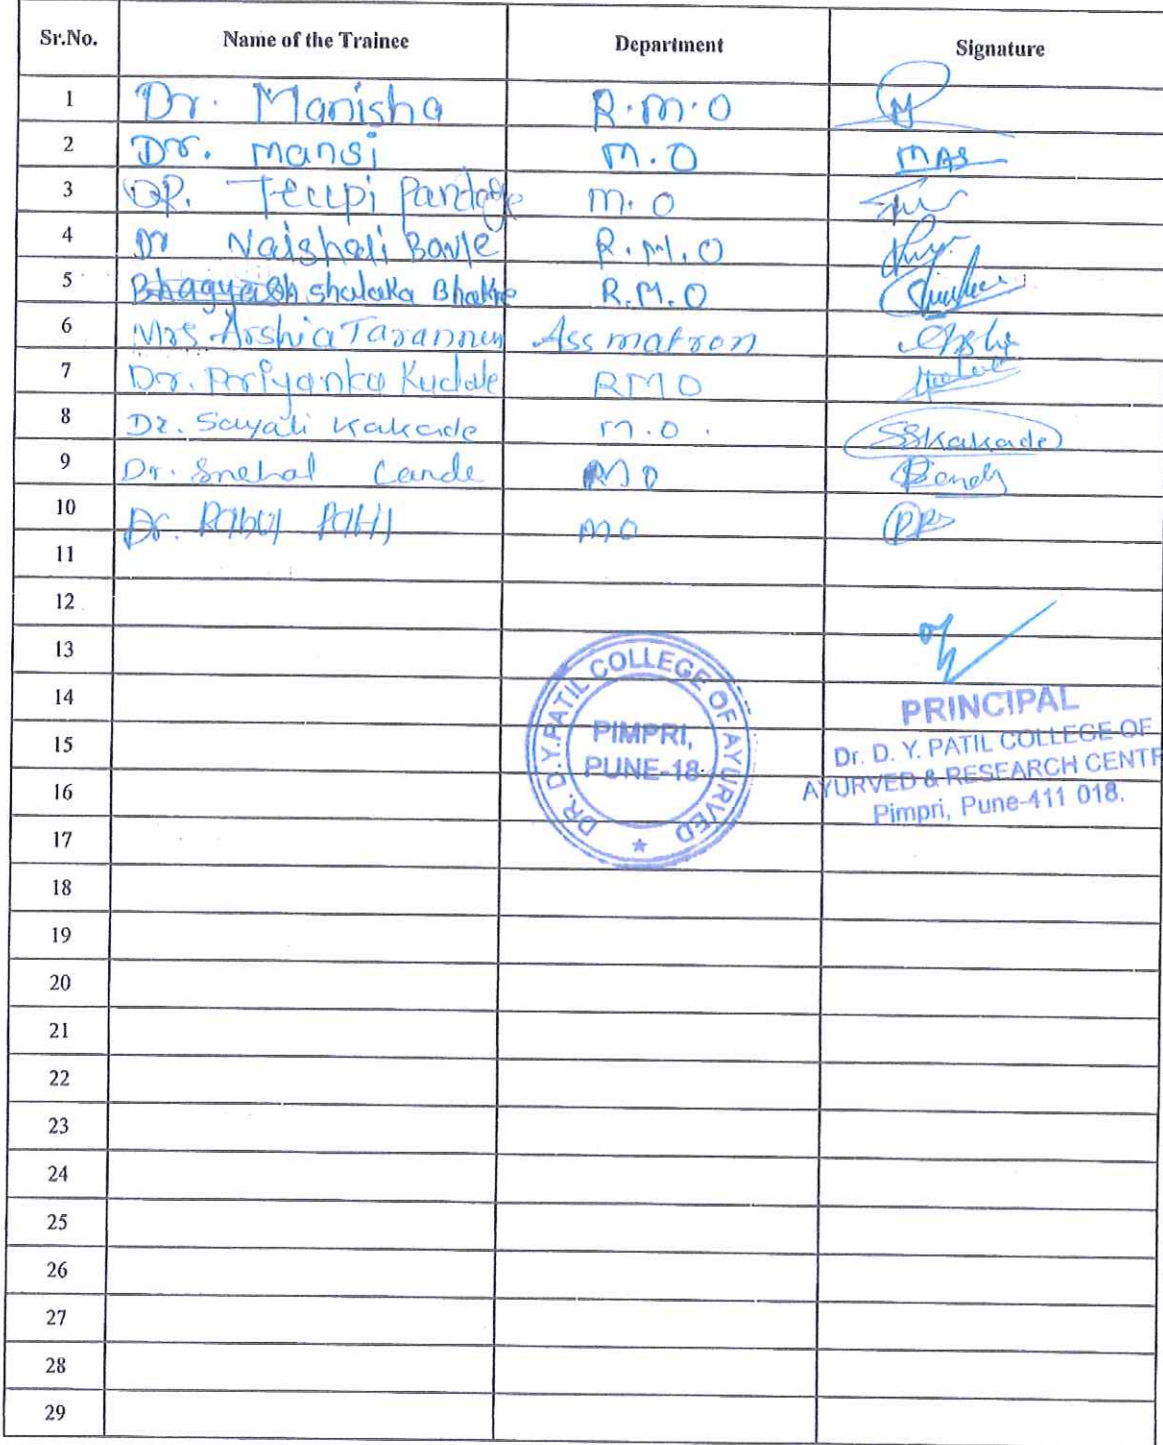 Sr.No. Name of the Trainee Department Signature
1 Dr. Manisha R.M.O
2 Dr. Mansi M.O MAS
3 DR. M.O
4 Dr Vaishali R.M.O
5 shalaka Bhakre R.M.O
6 Mrs. Arshia Tarannum Ass matron
7 Dr. Priyanka Kudale RMO
8 Dr. Sayali Kakade M.O. SSKakade
9 Dr. Snehal Lande MO
10 Dr. MO
11
12
13
14
15
16
17
18
19
20
21
22
23
24
25
26
27
28
29
DR. D.Y.PATIL COLLEGE OF AYURVED
PIMPRI,
PUNE-18
PRINCIPAL
Dr. D. Y. PATIL COLLEGE OF
AYURVED & RESEARCH CENTR
Pimpri, Pune-411 018.